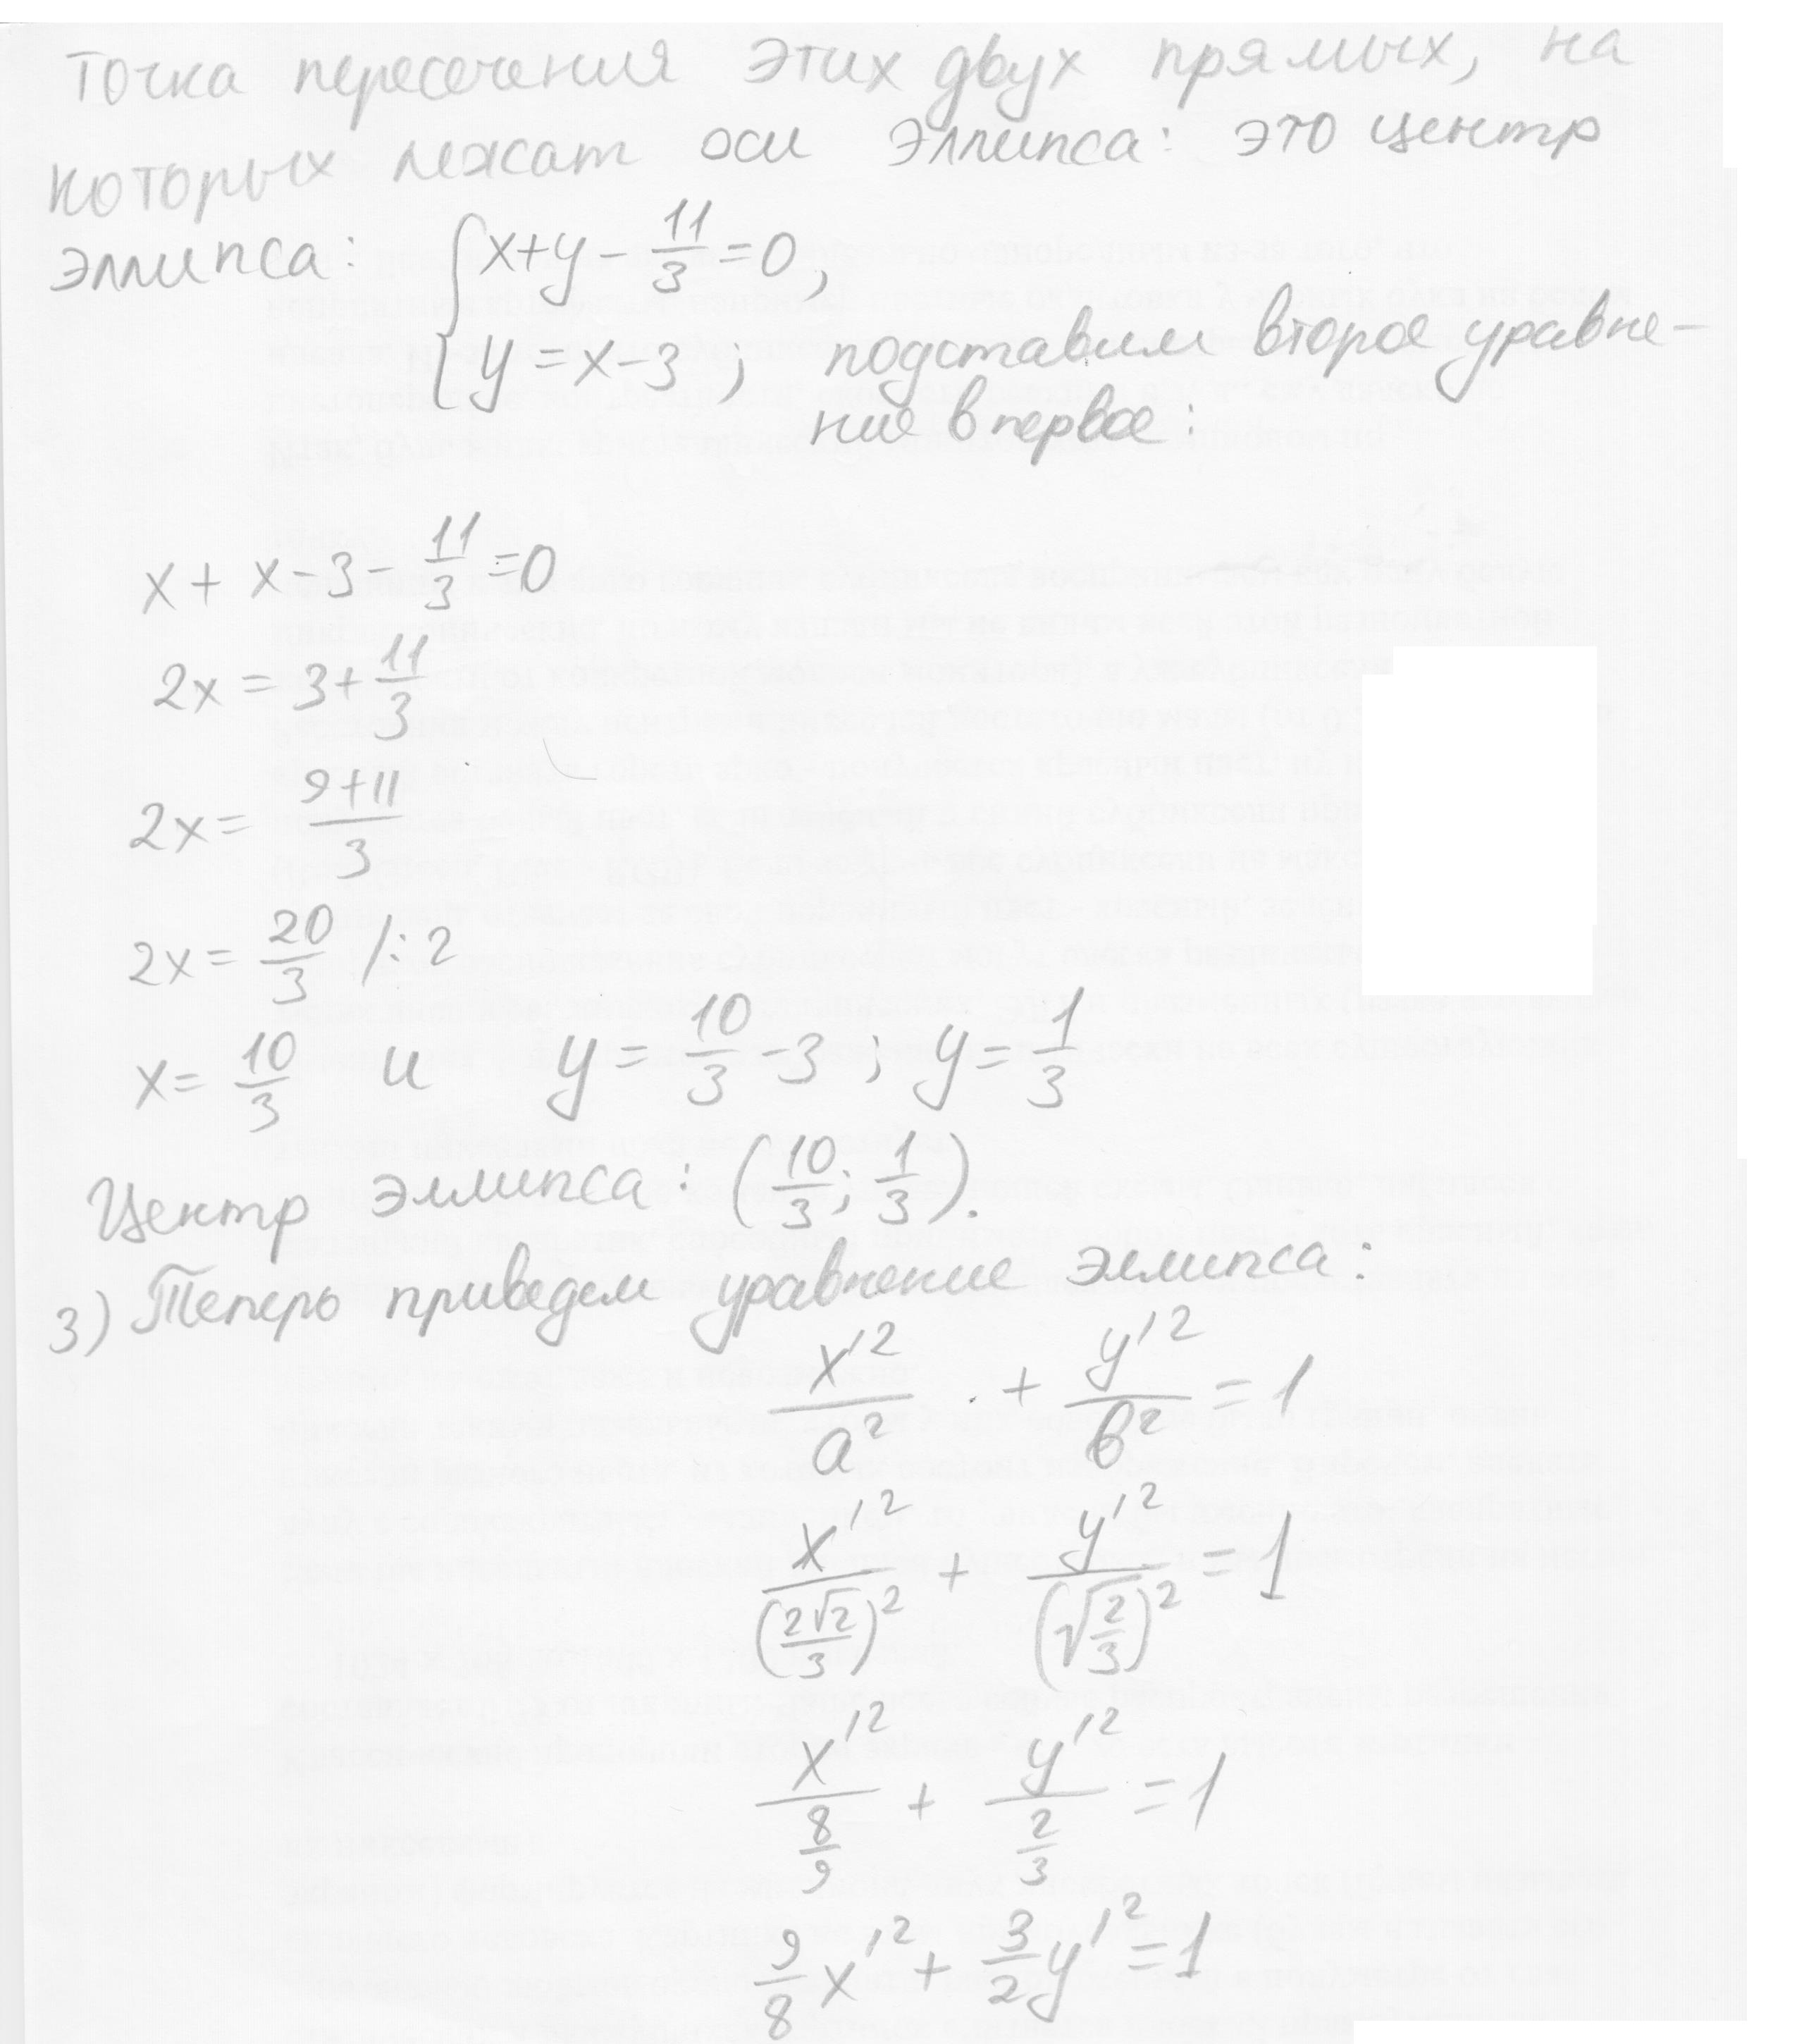 точка пересечения этих двух прямых, на
которых лежат оси эллипса: это центр
эллипса: { x+y - 11/3 = 0,
y = x - 3 ; подставим второе уравне-
ние в первое:
x + x - 3 - 11/3 = 0
2x = 3 + 11/3
2x = (9+11)/3
2x = 20/3 /: 2
x = 10/3 и y = 10/3 - 3 ; y = 1/3
Центр эллипса: (10/3; 1/3).
3) Теперь приведем уравнение эллипса:
x'²/a² + y'²/b² = 1
x'²/(2√2/3)² + y'²/(√(2/3))² = 1
x'²/(8/9) + y'²/(2/3) = 1
9/8 x'² + 3/2 y'² = 1